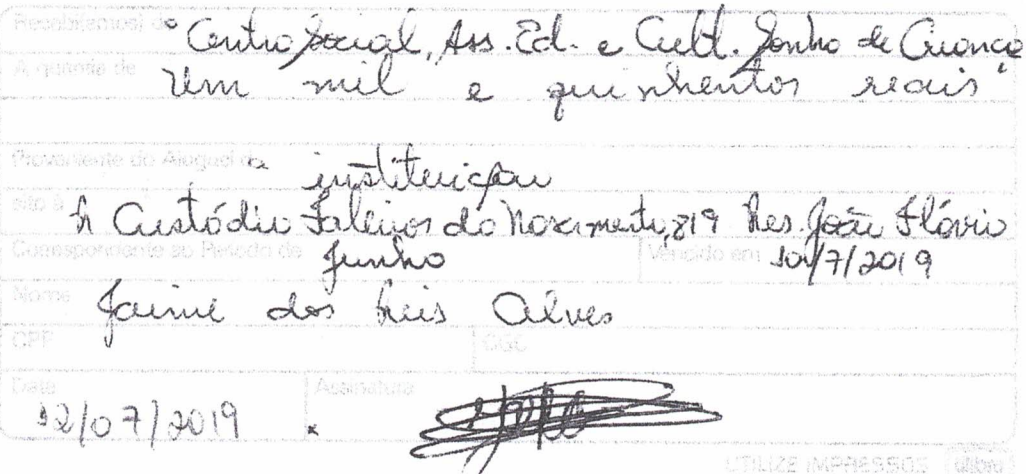 Recebi(emos) de Centro Social, Ass. Ed. e Cult. Sonho de Criança
A quantia de Um mil e quinhentos reais
Proveniente do Aluguel de instituição
sito à R Custódio Faleiros do Nascimento, 819 Res. João Flávio
Correspondente ao Período de Junho Vencido em 10/7/2019
Nome Jaime dos Reis Alves
CPF CGC
Data Assinatura
12/07/2019
UTILIZE IMPRESSOS